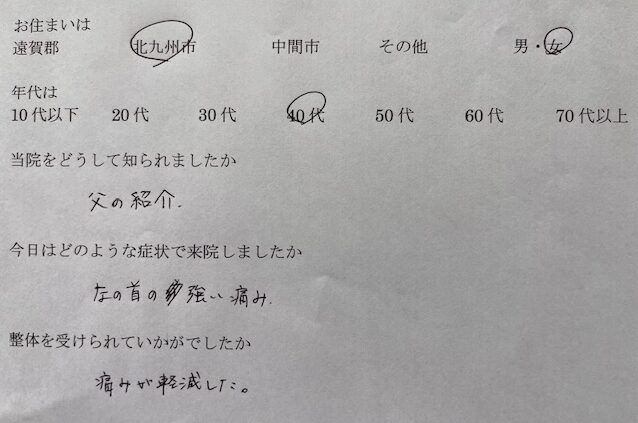 お住まいは
遠賀郡 北九州市 中間市 その他 男・女
年代は
10代以下 20代 30代 40代 50代 60代 70代以上
当院をどうして知られましたか
父の紹介.
今日はどのような症状で来院しましたか
左の首の強い痛み.
整体を受けられていかがでしたか
痛みが軽減した。